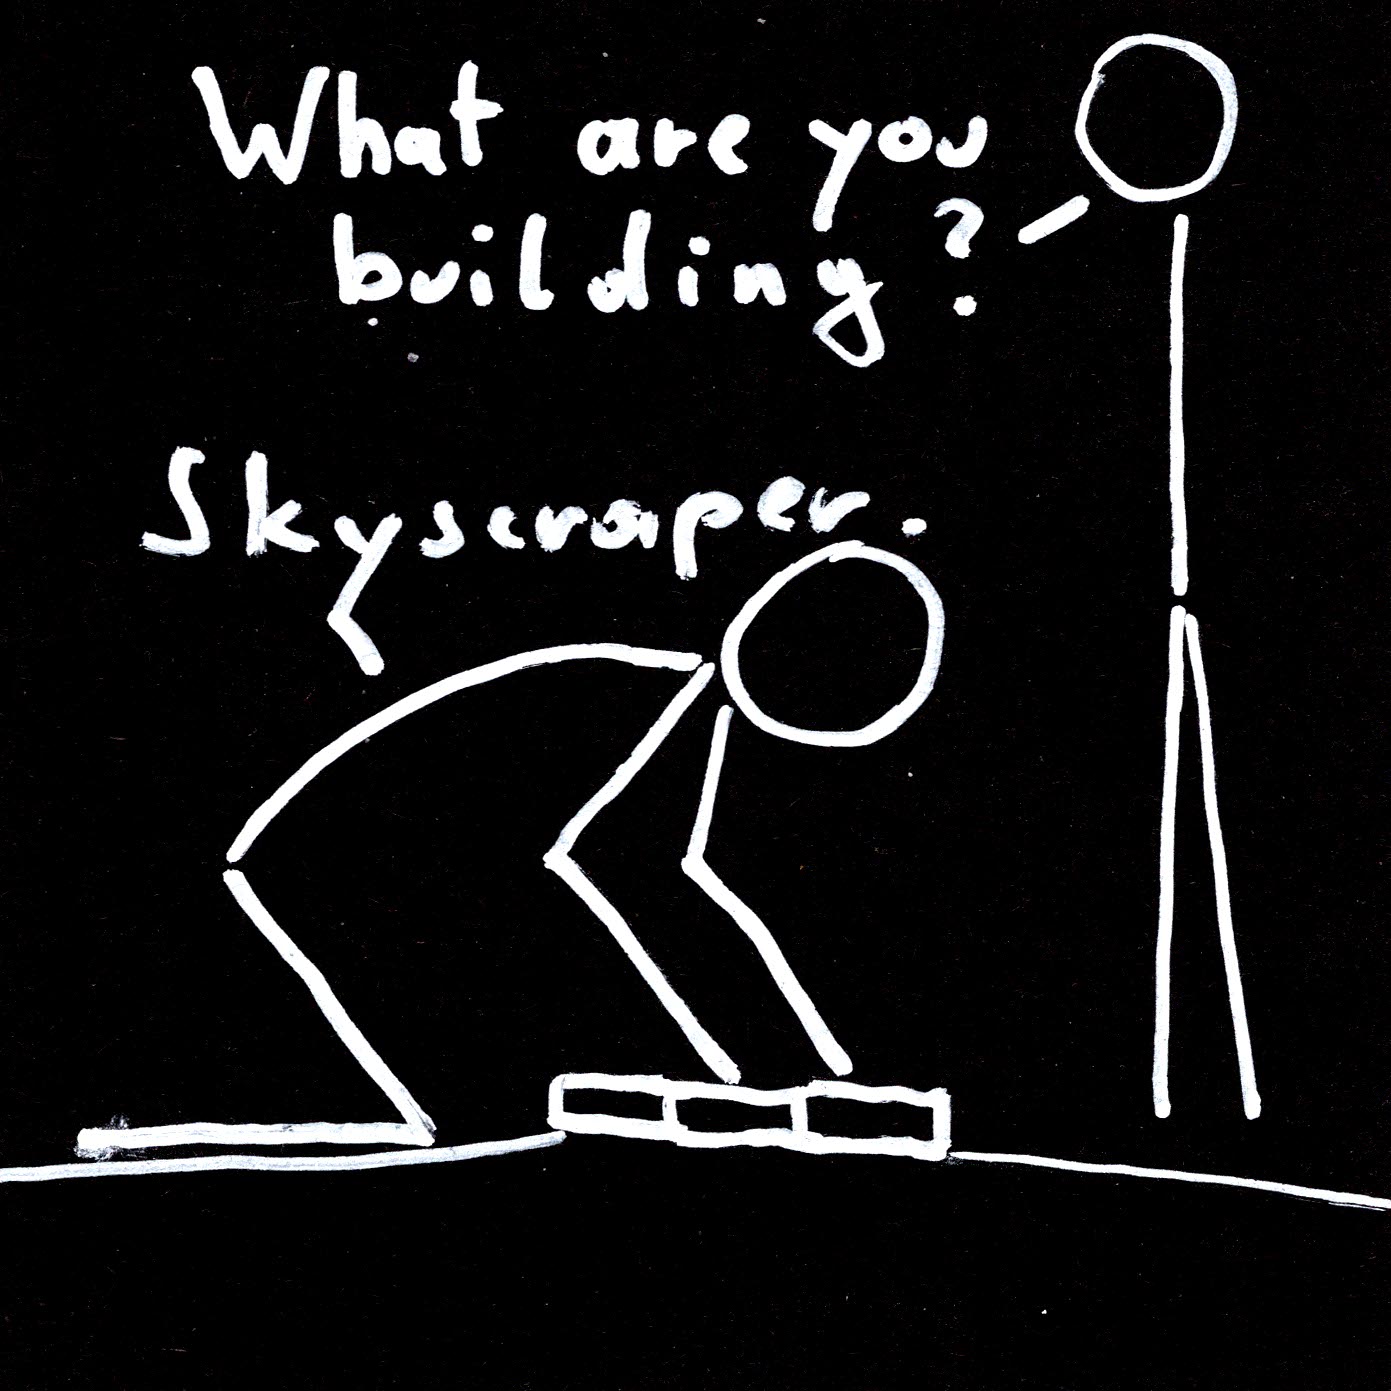 What are you
building?
Skyscraper.